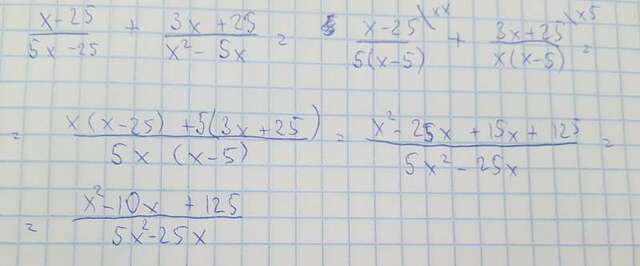 (x-25)/(5x-25) + (3x+25)/(x²-5x) = (x-25)/(5(x-5)) \xx + (3x+25)/(x(x-5)) \x5 =
= (x(x-25)+5(3x+25))/(5x(x-5)) = (x²-25x+15x+125)/(5x²-25x) =
= (x²-10x+125)/(5x²-25x)